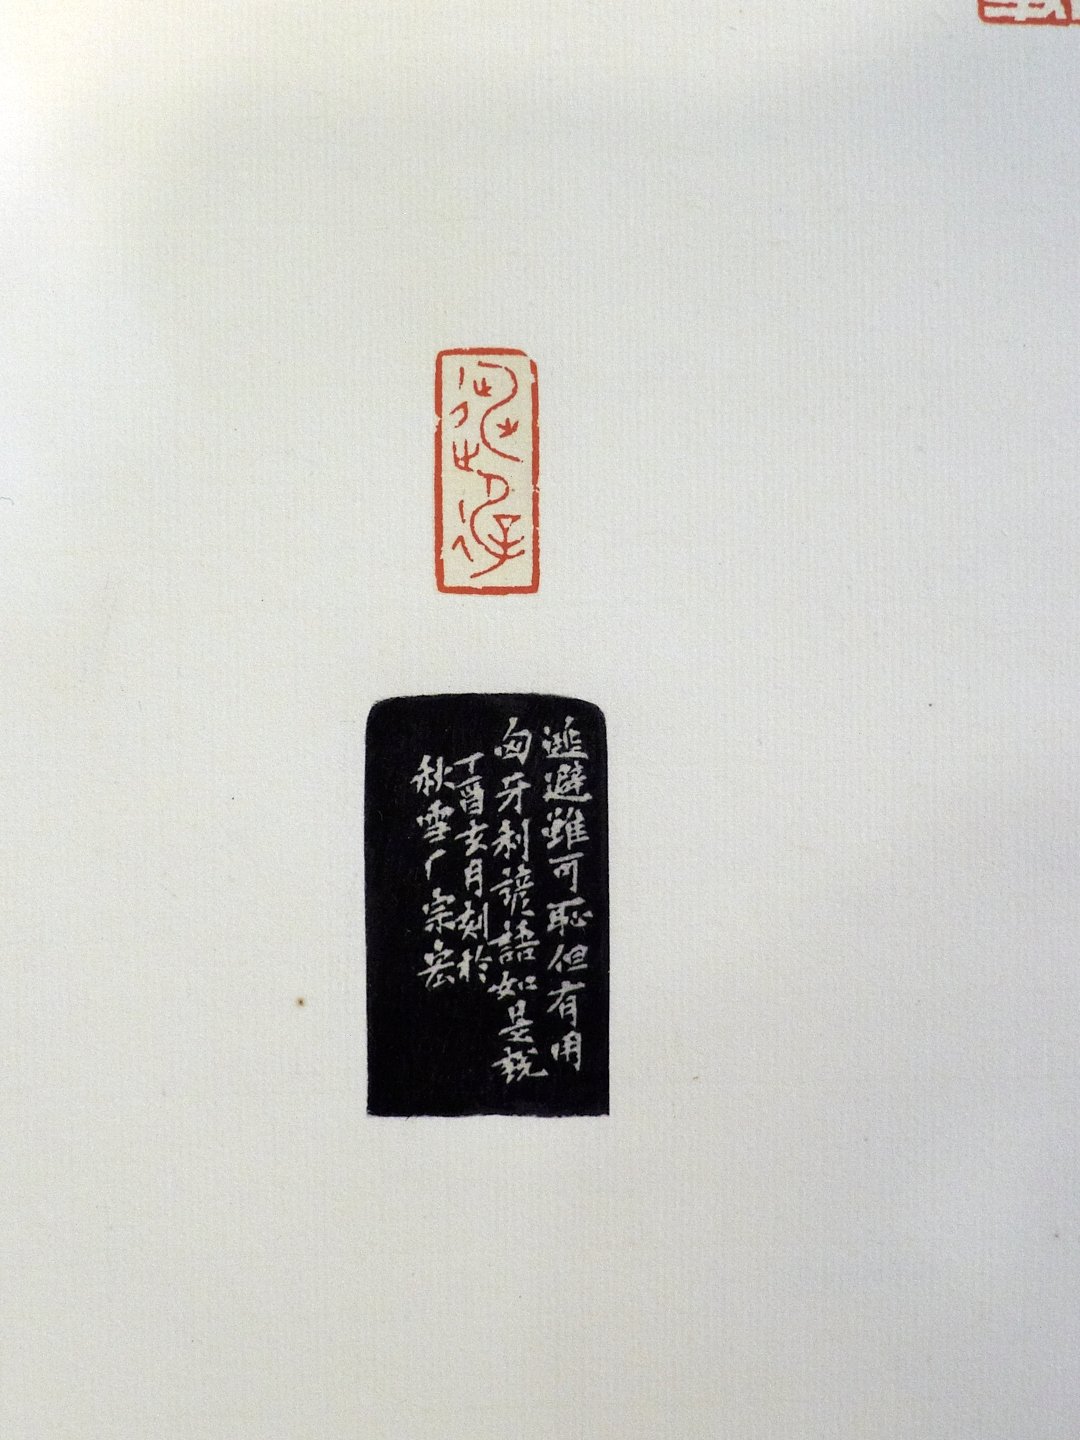 逃避雖可恥但有用
匈牙利諺語如是說
丁酉亥月刻於
秋雪厂宗宏